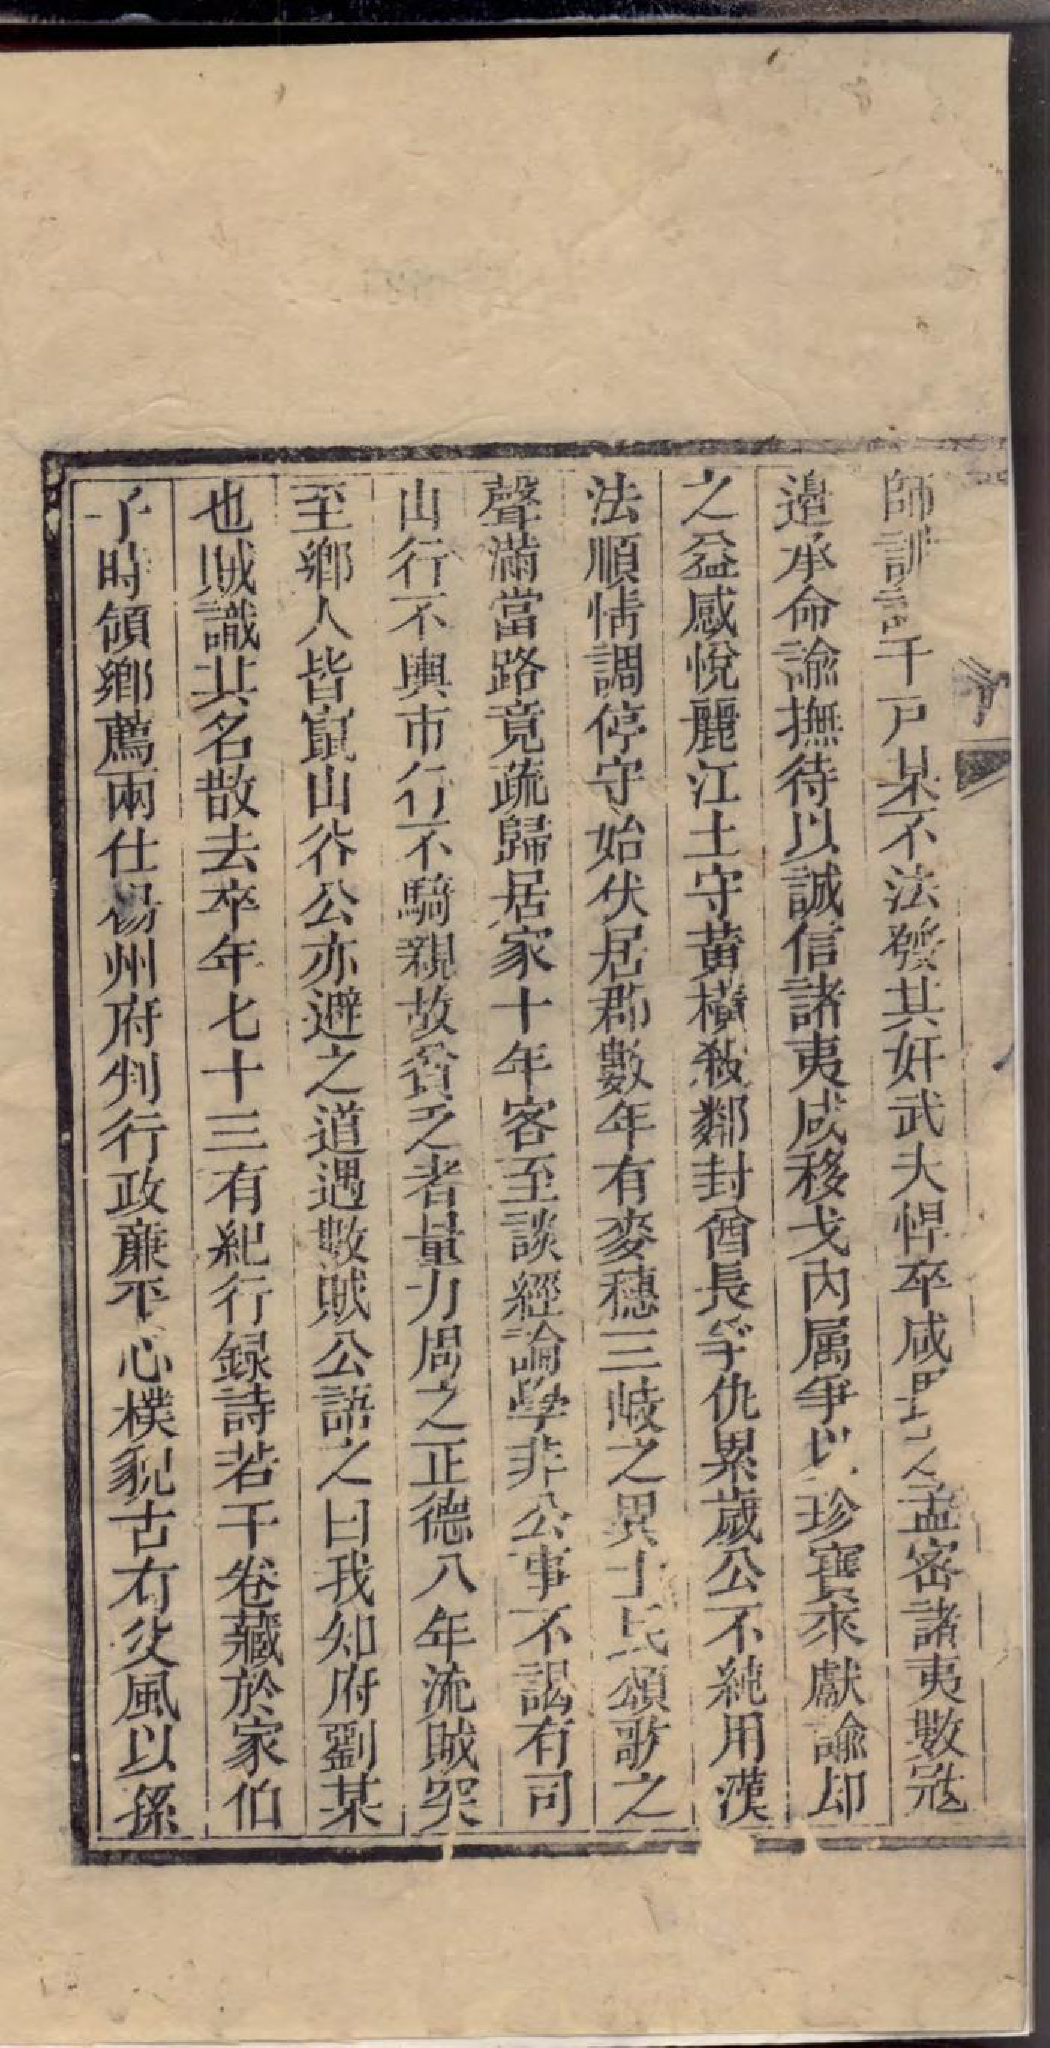 師訓千戶某不法發其奸武夫悍卒咸畏之孟密諸夷數寇
邉承命諭撫待以誠信諸夷咸移戈內属爭以珍寶來獻諭却
之益感悅麗江土守黃橫殺鄰封酋長爭仇累歲公不純用漢
法順情調停守始伏居郡數年有麥穗三岐之異士民頌歌之
聲滿當路竟疏歸居家十年客至談經論學非公事不謁有司
山行不輿市行不騎親故貧乏者量力周之正德八年流賊突
至鄉人皆竄山谷公亦避之道遇數賊公語之曰我知府劉某
也賊識其名散去卒年七十三有紀行録詩若干卷藏於家伯
子時領鄉薦兩仕楊州府判行政亷平心樸皃古有父風以孫